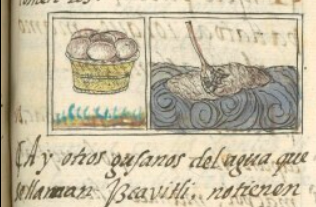 ¶ Ay otros gusanos del agua que
se llaman Izcavitli, no tienen